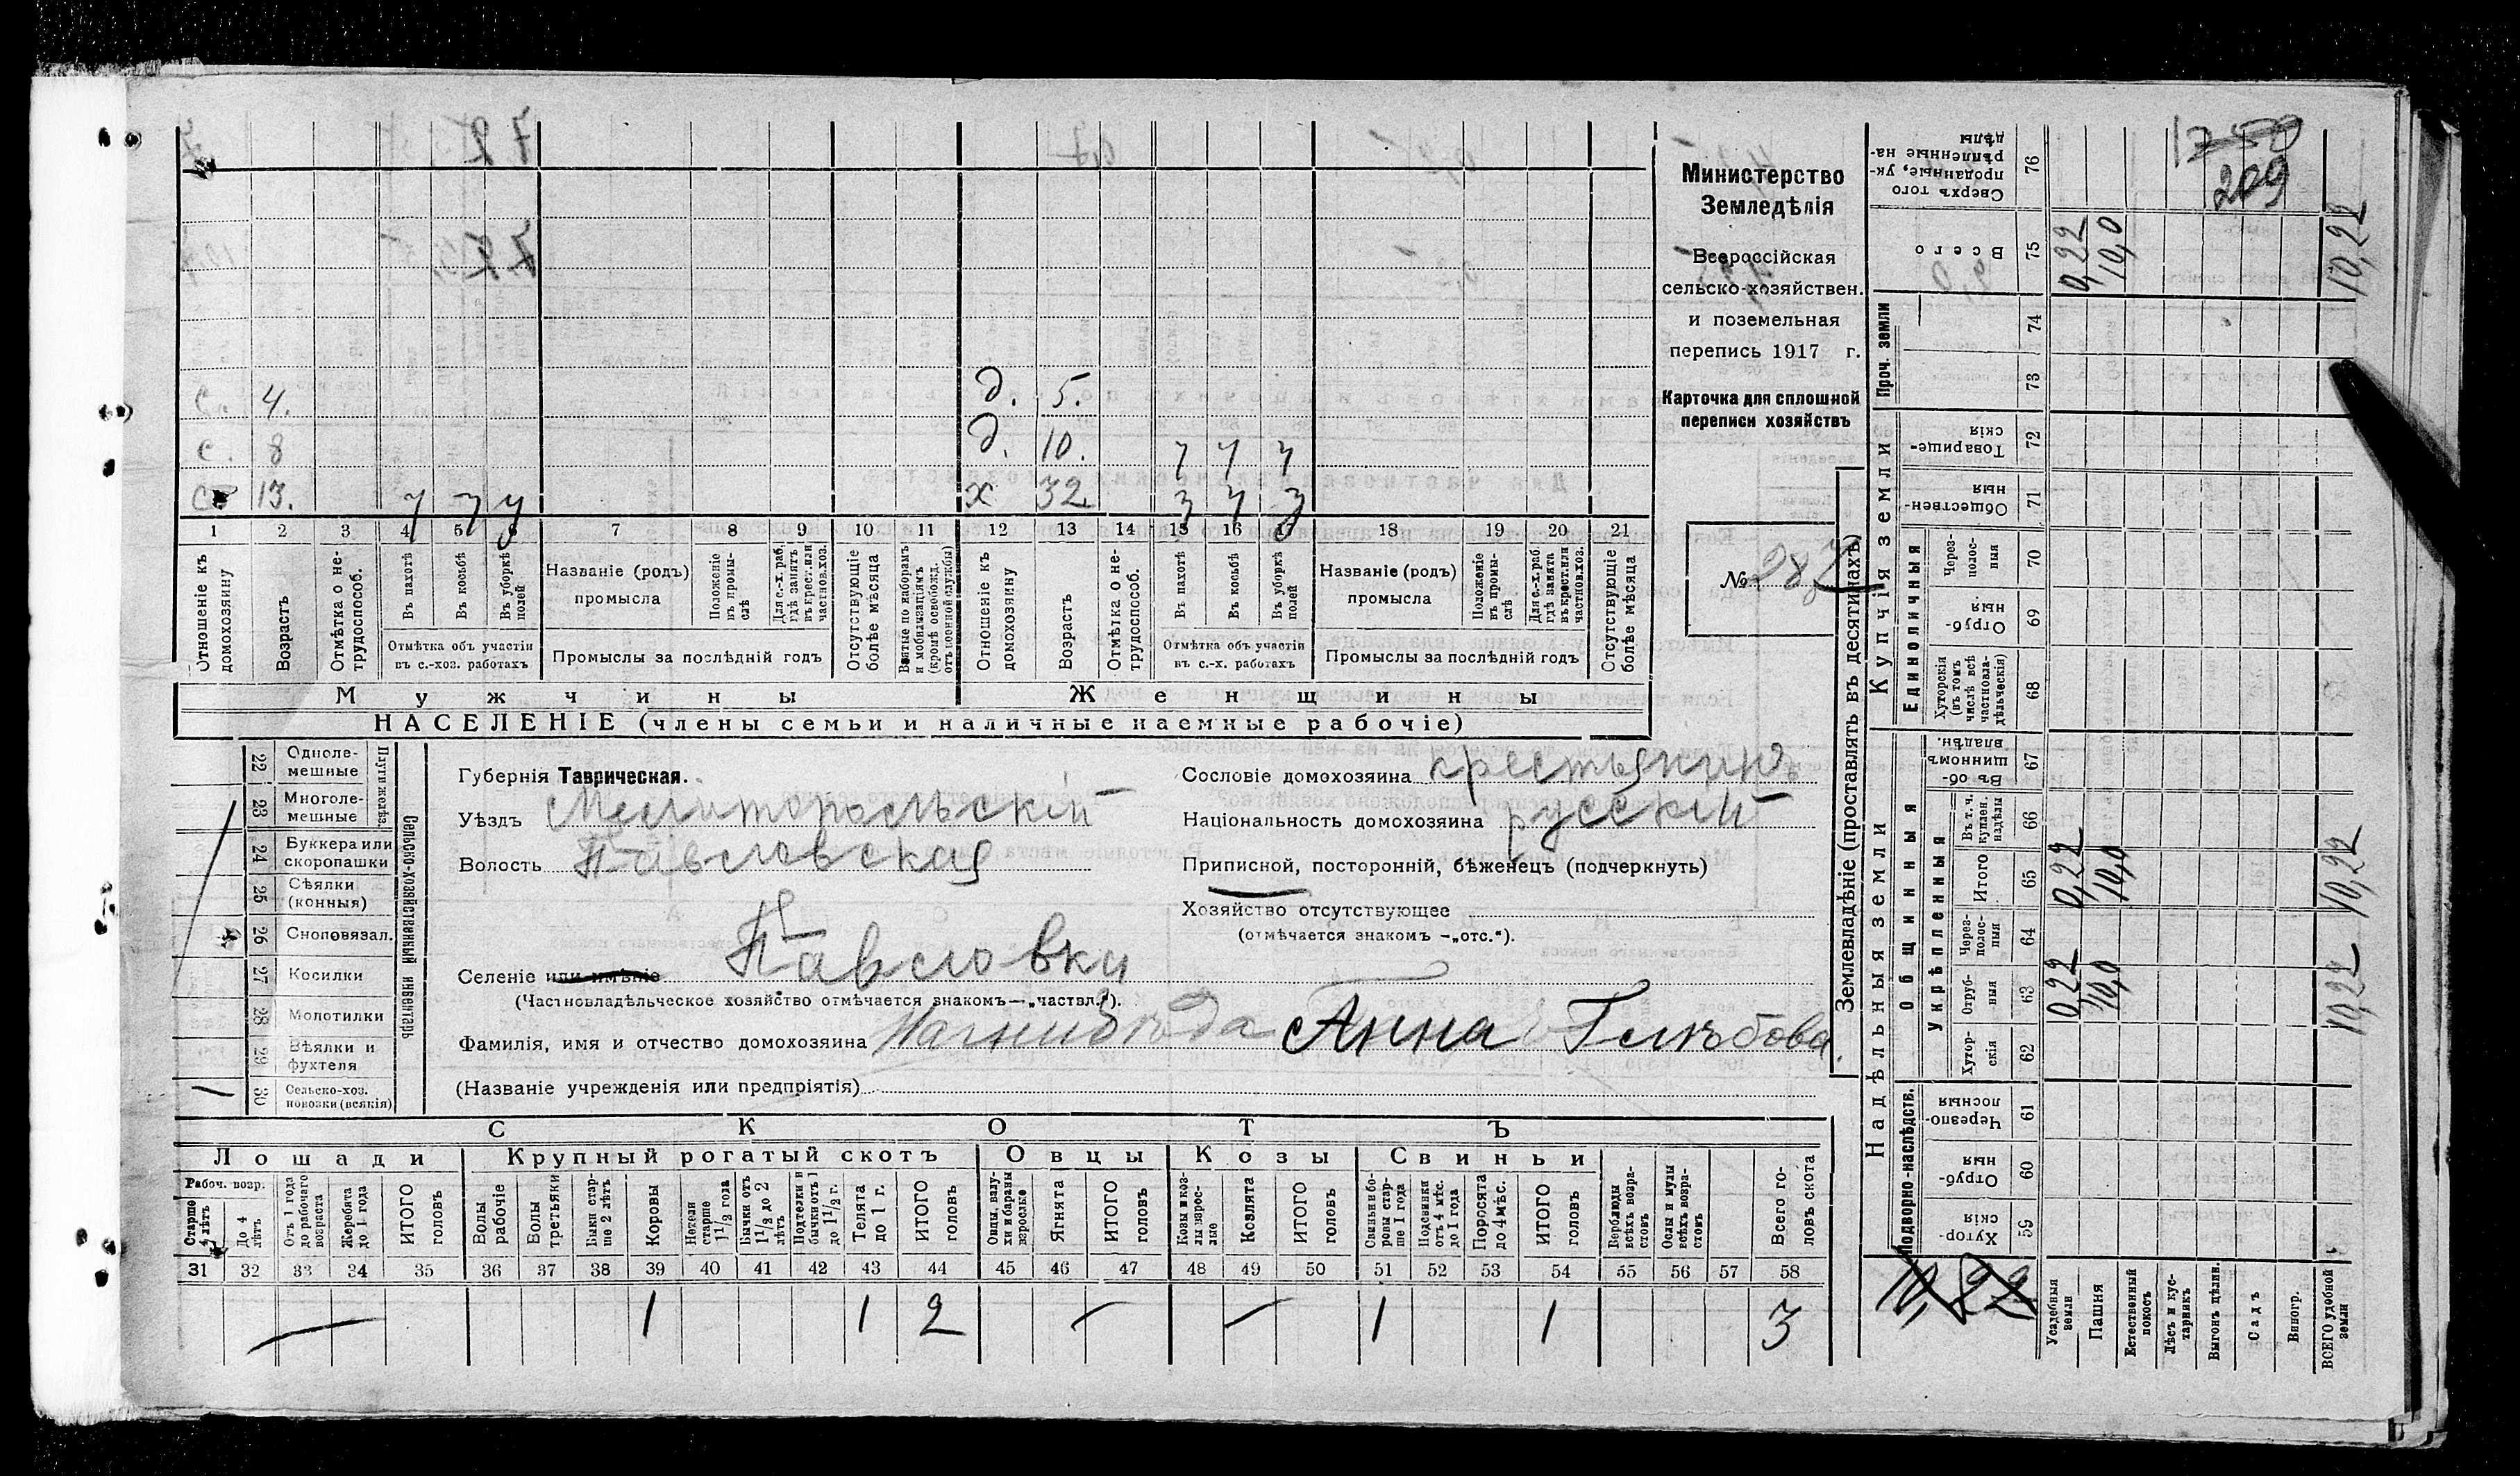 Министерство
Земледѣлія
Всероссійская
сельско-хозяйствен.
и поземельная
перепись 1917 г.
Карточка для сплошной
переписи хозяйствъ
№ 287
с. 4. д. 5.
с. 8 д. 10. 7 7 7
с 13. 7 7 7 х 32
1 2 3 4 5 6 7 8 9 10 11 12 13 14 15 16 17 18 19 20 21
Отношеніе къ домохозяину
Возрастъ
Отмѣтка о нетрудоспособ.
Въ пахотѣ
Въ косьбѣ
Въ уборкѣ полей
Отмѣтка объ участіи
въ с.-хоз. работахъ
Названіе (родъ)
промысла
Положеніе въ промыслѣ
Для с.-х. раб. гдѣ занятъ въ крест. или частнов. хоз.
Промыслы за послѣдній годъ
Отсутствующіе болѣе мѣсяца
Взятые по наборамъ и мобилизаціямъ (кромѣ освобожд. отъ военной службы)
Отношеніе къ домохозяину
Возрастъ
Отмѣтка о нетрудоспособ.
Въ пахотѣ
Въ косьбѣ
Въ уборкѣ полей
Отмѣтка объ участіи
въ с.-х. работахъ
Названіе (родъ)
промысла
Положеніе въ промыслѣ
Для с.-х. раб. гдѣ занята въ крест. или частнов. хоз.
Промыслы за послѣдній годъ
Отсутствующіе болѣе мѣсяца
Мужчины Женщины
НАСЕЛЕНІЕ (члены семьи и наличные наемные рабочіе)
22 Одноле-
мешные
23 Многоле-
мешные
24 Буккера или
скоропашки
25 Сѣялки
(конныя)
26 Сноповязал.
27 Косилки
28 Молотилки
29 Вѣялки и
фухтеля
30 Сельско-хоз.
повозки (всякія)
Сельско-хозяйственный инвентарь
Губернія Таврическая.
Уѣздъ Мелитопольскій
Волость Павловская
Селеніе или имѣніе Павловки
(Частновладѣльческое хозяйство отмѣчается знакомъ—„частвл.“).
Сословіе домохозяина крестьянинъ
Національность домохозяина русскій
Приписной, посторонній, бѣженец (подчеркнуть)
Хозяйство отсутствующее
(отмѣчается знакомъ -„отс.“).
Фамилія, имя и отчество домохозяина Анна Глѣбова.
(Названіе учрежденія или предпріятія)
СКОТЪ
Лошади Крупный рогатый скотъ Овцы Козы Свиньи
Рабоч. возр.
Старше 4 лѣтъ
До 4 лѣтъ
Отъ 1 года до рабочаго возраста
Жеребята до 1 года
ИТОГО головъ
Волы рабочіе
Волы третьяки
Быки старше 2 лѣтъ
Коровы
Нетели старше 1 1/2 года
Бычки отъ 1 1/2 до 2 лѣтъ
Подтелки и бычки отъ 1 до 1 1/2 г.
Телята до 1 г.
ИТОГО головъ
Овцы, валухи и бараны взрослые
Ягнята
ИТОГО головъ
Козы и козлы взрослые
Козлята
ИТОГО головъ
Свиньи и боровы старше 1 года
Подсвинки отъ 4 мѣс. до 1 года
Поросята до 4 мѣс.
ИТОГО головъ
Верблюды всѣхъ возрастовъ
Ослы и мулы всѣхъ возрастовъ
Всего головъ скота
31 32 33 34 35 36 37 38 39 40 41 42 43 44 45 46 47 48 49 50 51 52 53 54 55 56 57 58
1 1 2 1 1 3
Землевладѣніе (проставлять въ десятинахъ)
Надѣльныя земли
Купчія земли
Проч. земли
Подворно-наслѣдств.
Общинныя
Укрѣпленныя
Единоличныя
Хуторскія 59
Отрубныя 60
Черезполосныя 61
Хуторскія 62
Отрубныя 63 0,22 10,0 10,22
Черезполосныя 64
Итого 65 0,22 10,0 10,22
Въ т. ч. куплен. надѣлы 66
Въ общинномъ владѣн. 67
Хуторскія (въ томъ числѣ всѣ частновладѣльческія) 68
Отрубныя 69
Черезполосныя 70
Общественныя 71
Товарищескія 72
73
74
Всего 75 0,22 10,0 10,22
Сверхъ того проданные, укрѣпленные надѣлы 76
209
Усадебныя земли
Пашня
Естественный покосъ
Лѣсъ и кустарникъ
Выгонъ, цѣлин.
Садъ
Виногр.
ВСЕГО удобной земли